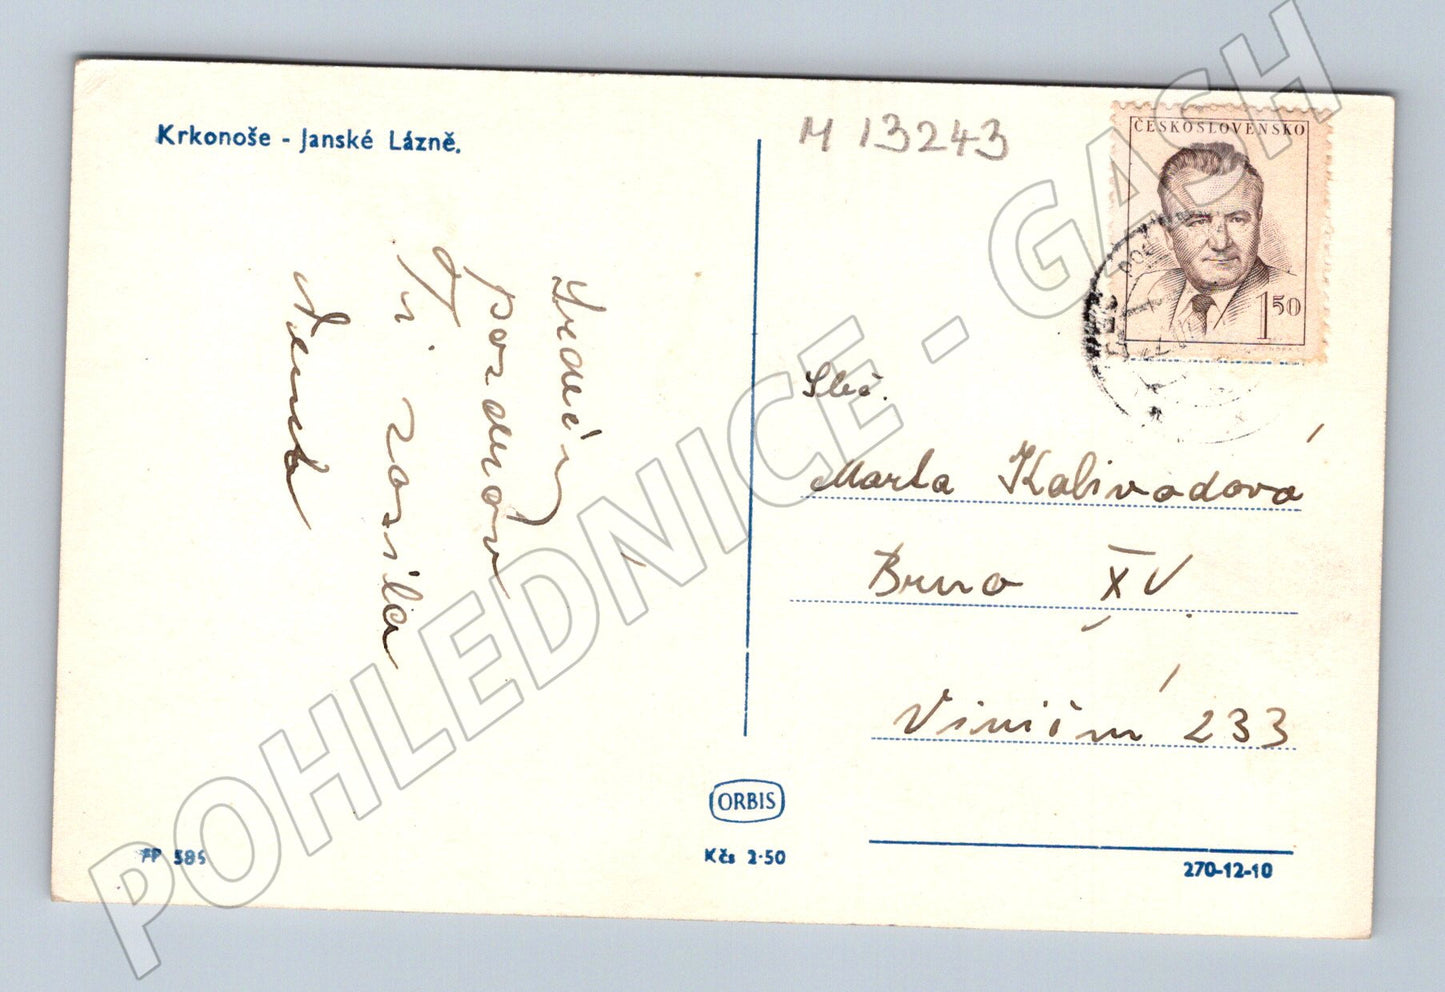 Krkonoše - Janské Lázně.
M 13243
ČESKOSLOVENSKO
1 50
Srdečný
pozdrav
Ti zasílá
Slč.
Marta Kalivodová
Brno XV.
Viniční 233
ORBIS
FP 585
Kčs 2·50
270-12-10
POHLEDNICE - GASH